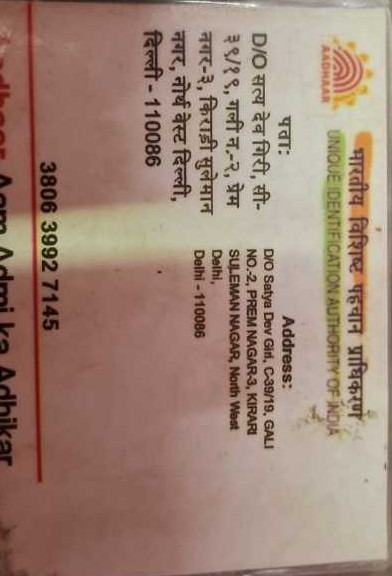 भारतीय विशिष्ट पहचान प्राधिकरण
UNIQUE IDENTIFICATION AUTHORITY OF INDIA
AADHAAR
पता:
D/O सत्य देव गिरी, सी-
३९/१९, गली न.-२, प्रेम
नगर-३, किराड़ी सुलेमान
नगर, नोर्थ वेस्ट दिल्ली,
दिल्ली - 110086
Address:
D/O Satya Dev Giri, C-39/19, GALI
NO.-2, PREM NAGAR-3, KIRARI
SULEMAN NAGAR, North West
Delhi,
Delhi - 110086
3806 3992 7145
Aam Admi ka Adhikar